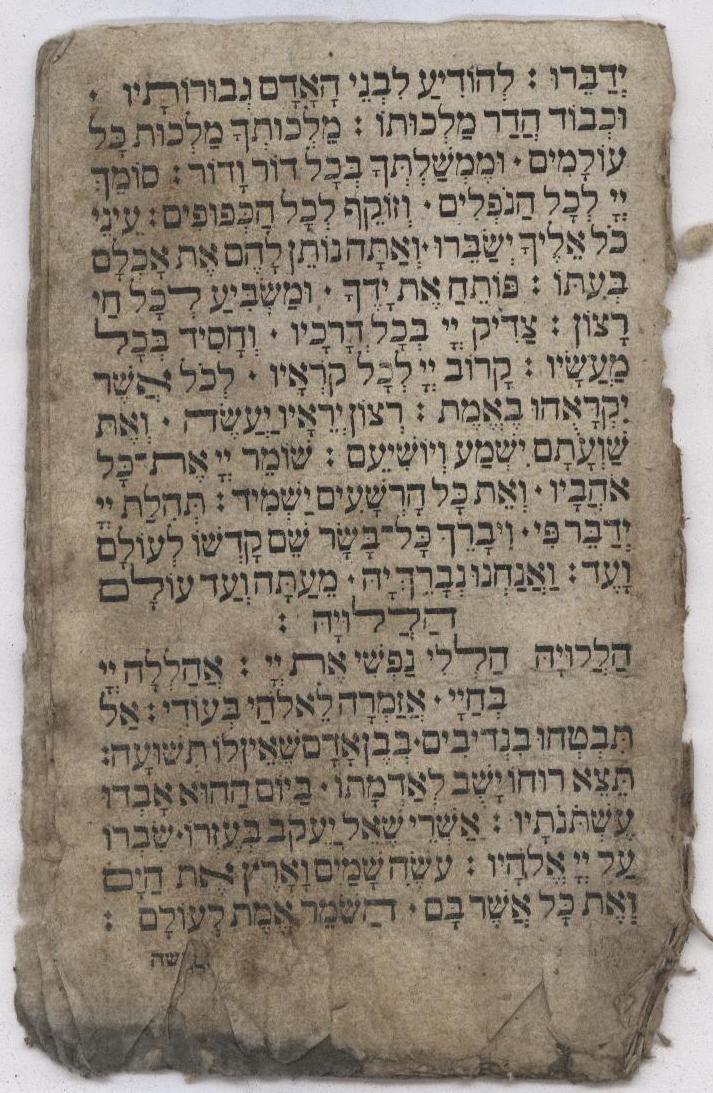 יְדַבֵּרוּ : לְהוֹדִיעַ לִבְנֵי הָאָדָם גְבוּרוֹתָיו ·
וּכְבוֹד הֲדַר מַלְכוּתוֹ : מַלְכוּתְךָ מַלְכוּת כָּל
עוֹלָמִים · וּמֶמְשַׁלְתְּךָ בְּכָל דוֹר וָדוֹר : סוֹמֵךְ
יְיָ לְכָל הַנֹפְלִים · וְזוֹקֵף לְכָל הַכְּפוּפִים : עֵינֵי
כֹל אֵלֶיךָ יְשַׂבֵּרוּ · וְאַתָּה נוֹתֵן לָהֶם אֶת אָכְלָם
בְּעִתּוֹ : פּוֹתֵחַ אֶת יָדֶךָ · וּמַשְׂבִּיעַ לְכָל חַי
רָצוֹן : צַדִּיק יְיָ בְּכָל דְרָכָיו · וְחָסִיד בְּכָל
מַעֲשָׂיו : קָרוֹב יְיָ לְכָל קֹרְאָיו · לְכֹל אֲשֶׁר
יִקְרָאֻהוּ בֶאֱמֶת : רְצוֹן יְרֵאָיו יַעֲשֶׂה · וְאֶת
שַׁוְעָתָם יִשְׁמַע וְיוֹשִׁיעֵם : שׁוֹמֵר יְיָ אֶת־כָּל
אֹהֲבָיו · וְאֵת כָּל הָרְשָׁעִים יַשְׁמִיד : תְּהִלַּת יְיָ
יְדַבֵּר פִּי · וִיבָרֵךְ כָּל־בָּשָׂר שֵׁם קָדְשׁוֹ לְעוֹלָם
וָעֶד : וַאֲנַחְנוּ נְבָרֵךְ יָהּ · מֵעַתָּה וְעַד עוֹלָם
הַלְלוּיָהּ :
הַלְלוּיָהּ הַלְלִי נַפְשִׁי אֶת יְיָ : אֲהַלְלָה יְיָ
בְּחַיָּי · אֲזַמְּרָה לֵאלֹהַי בְּעוֹדִי : אַל
תִּבְטְחוּ בִנְדִיבִים · בְּבֶן אָדָם שֶׁאֵין לוֹ תְשׁוּעָה :
תֵּצֵא רוּחוֹ יָשֻׁב לְאַדְמָתוֹ · בַּיוֹם הַהוּא אָבְדוּ
עֶשְׁתֹּנֹתָיו : אַשְׁרֵי שֶׁאֵל יַעֲקֹב בְּעֶזְרוֹ · שִׂבְרוֹ
עַל יְיָ אֱלֹהָיו : עֹשֶׂה שָׁמַיִם וָאָרֶץ אֶת הַיָּם
וְאֶת כָּל אֲשֶׁר בָּם · הַשֹּׁמֵר אֱמֶת לְעוֹלָם :